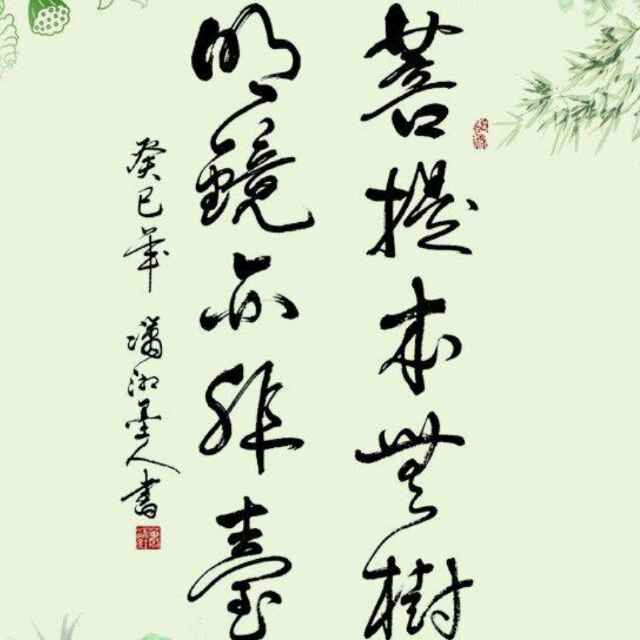 菩提本无樹
明鏡亦非臺
癸巳年 瀟湘墨人書